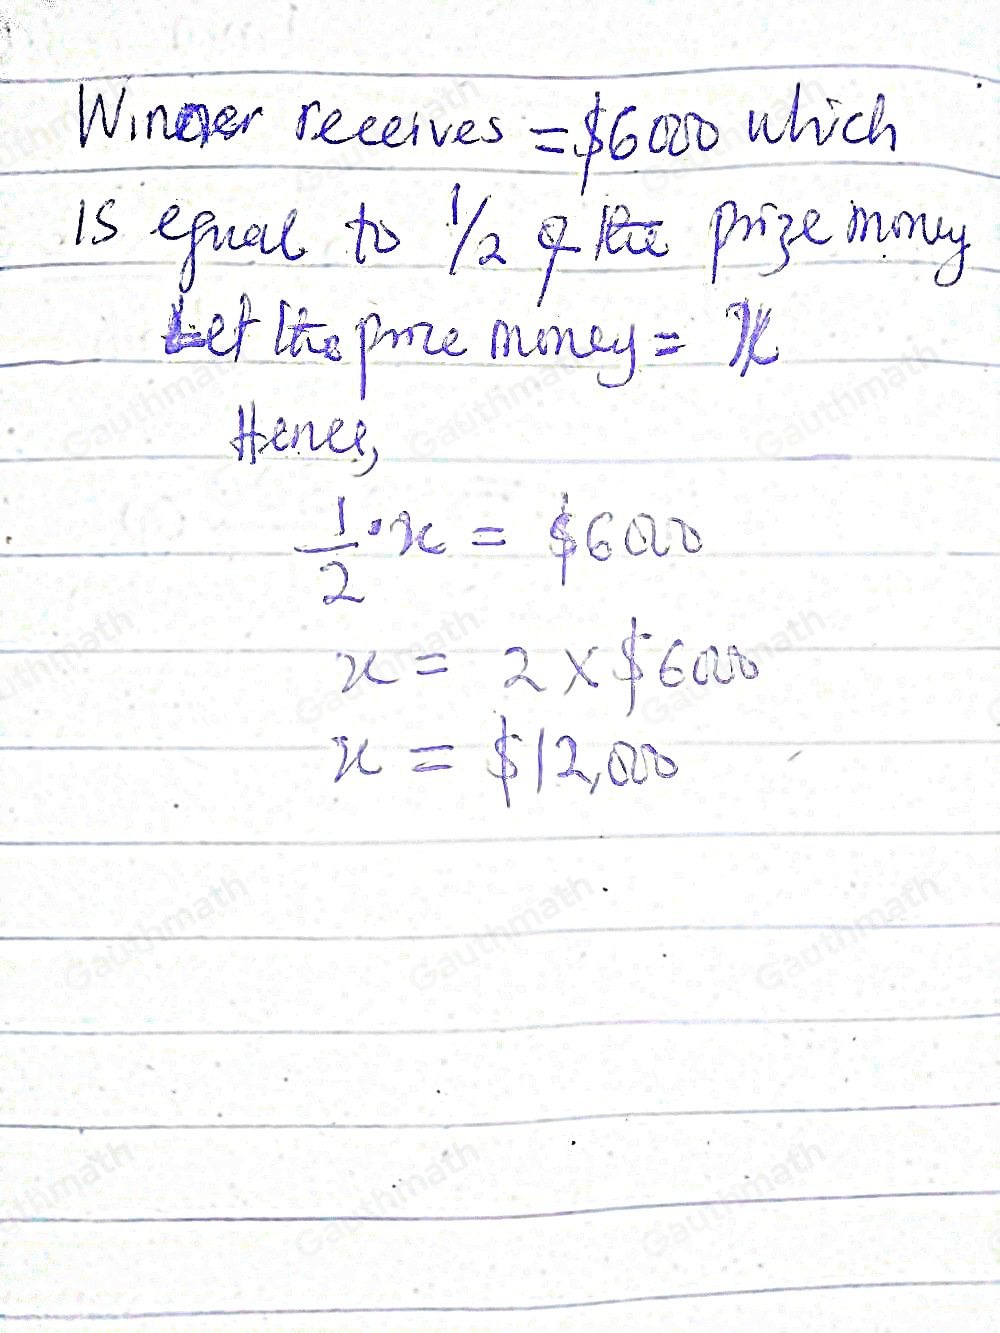 Winner receives = $6000 which
is equal to 1/2 of the prize money
Let the prize money = x
Hence,
1/2 · x = $6000
x = 2 x $6000
x = $12,000